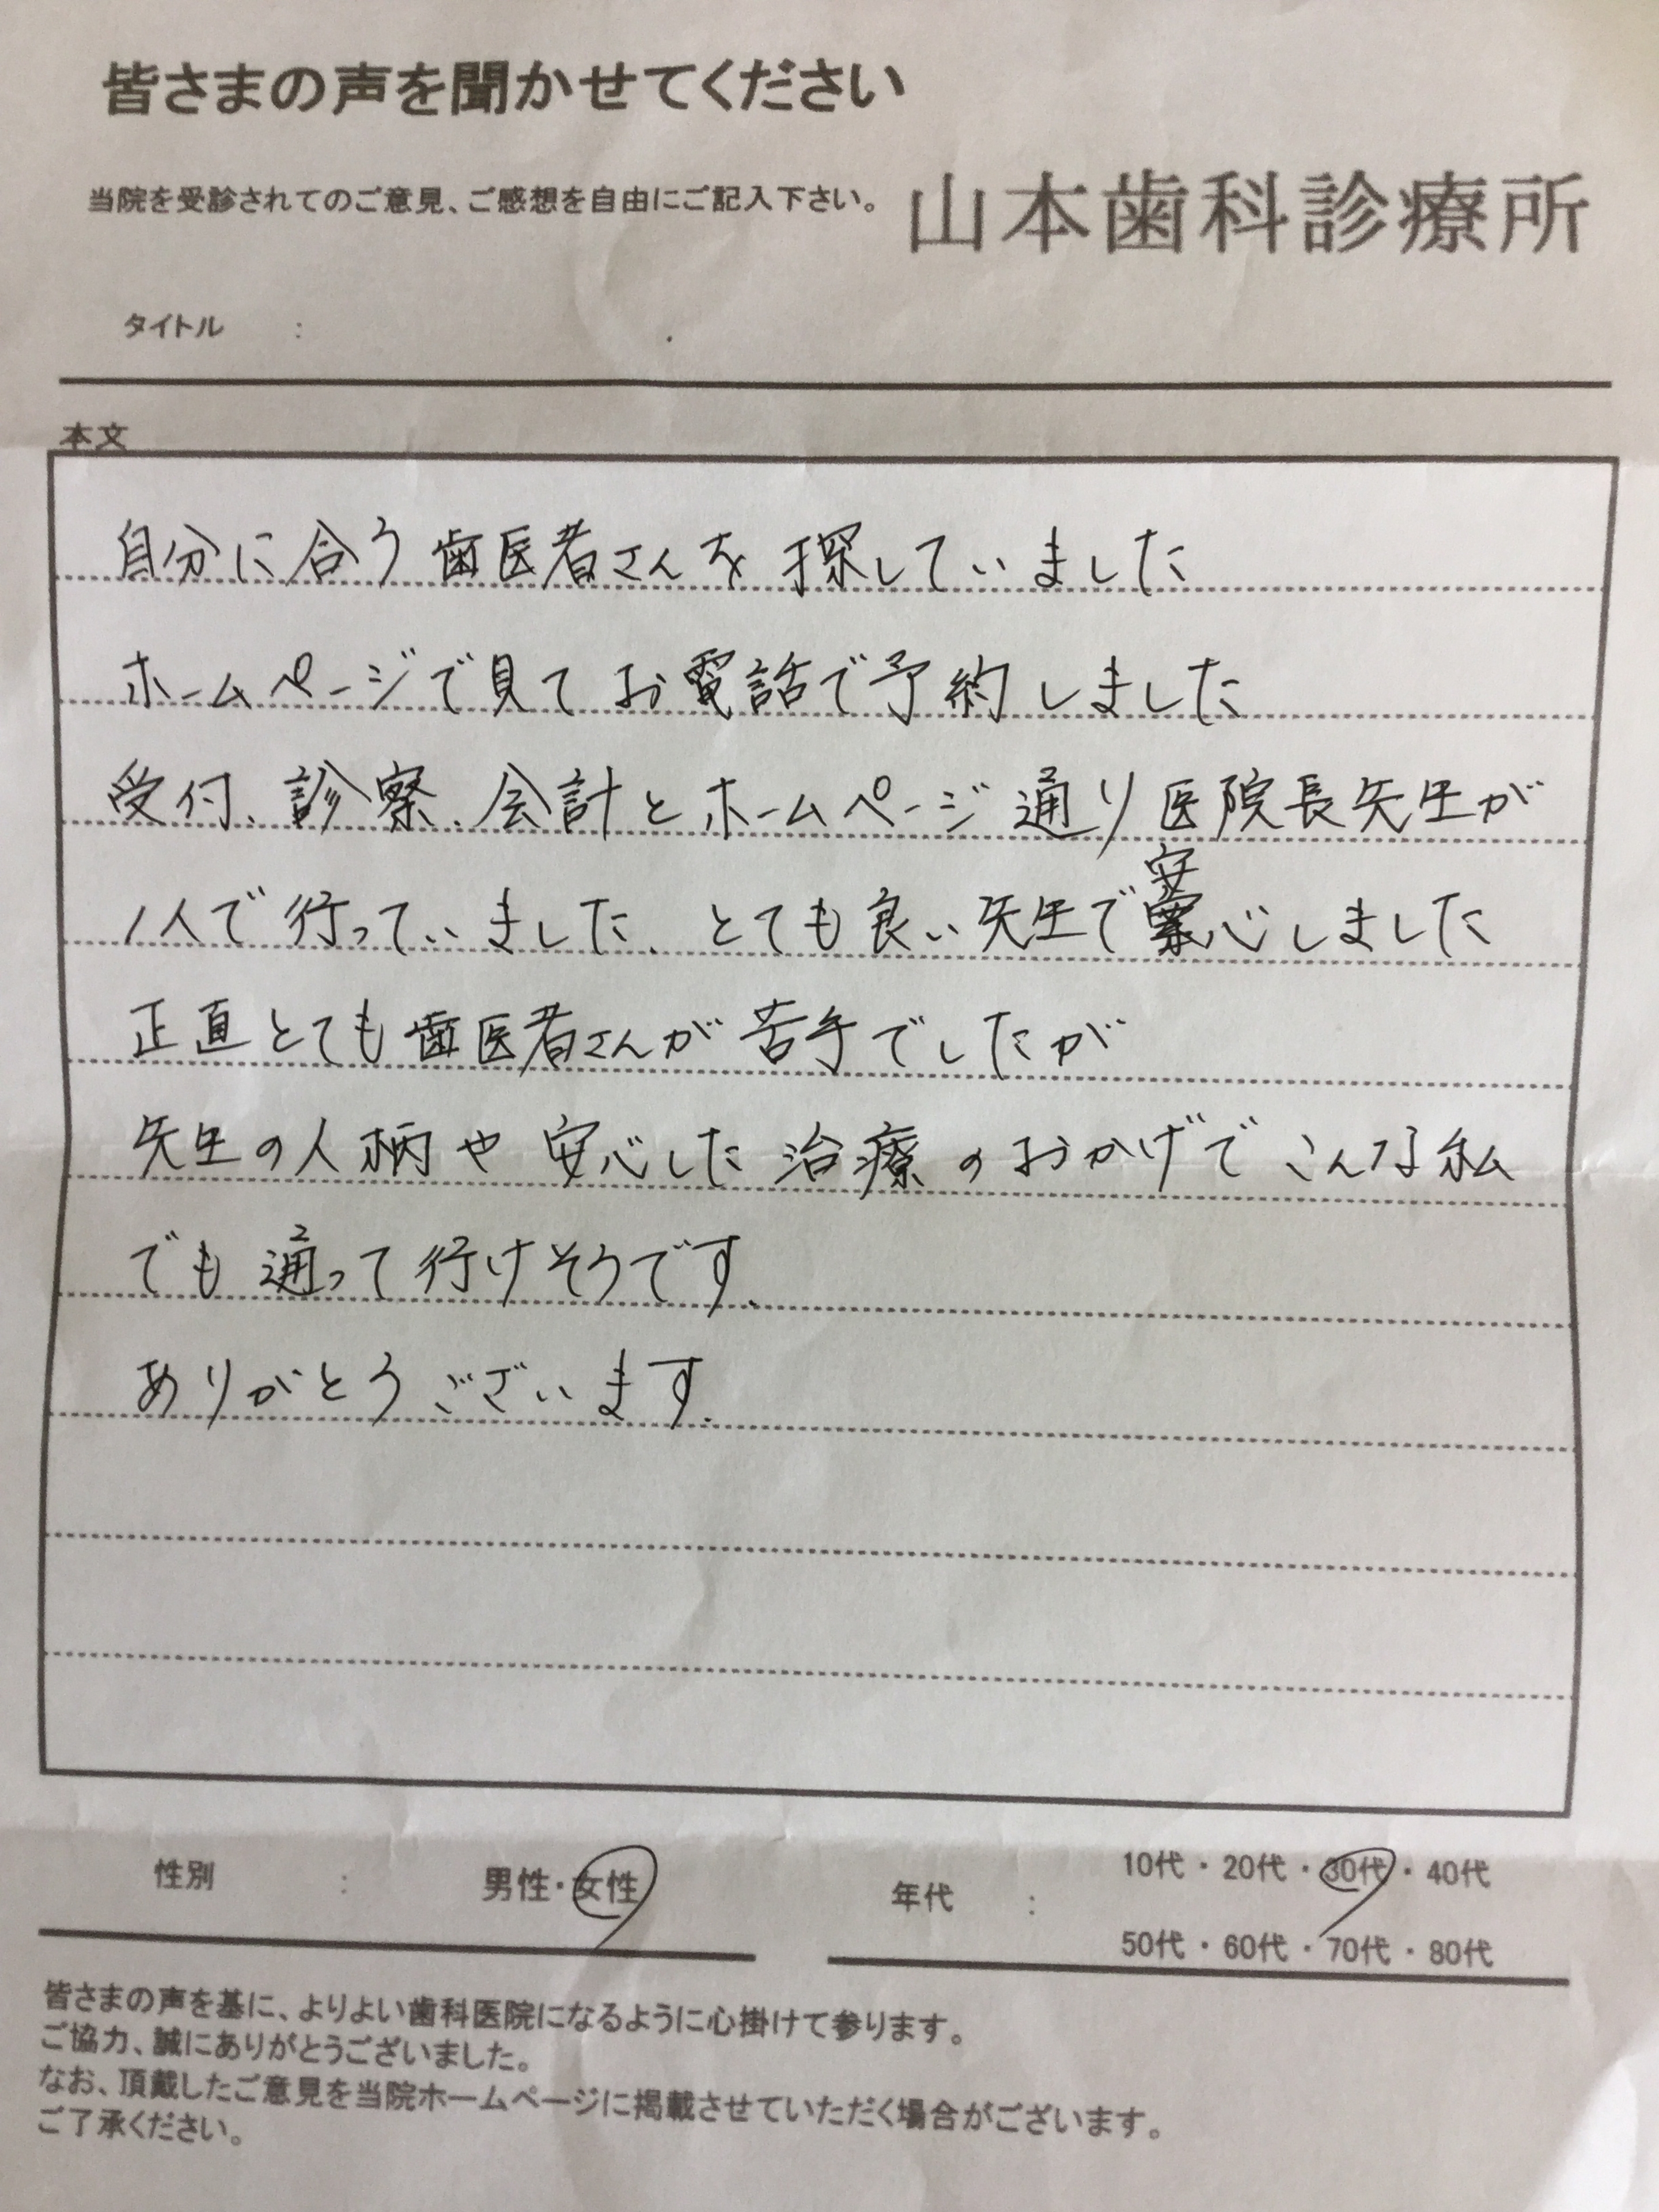 皆さまの声を聞かせてください
当院を受診されてのご意見、ご感想を自由にご記入下さい。 山本歯科診療所
タイトル :
本文
自分に合う歯医者さんを探していました
ホームページで見てお電話で予約しました
受付、診察、会計とホームページ通り医院長先生が
1人で行っていました、とても良い先生で安心しました
正直とても歯医者さんが苦手でしたが
先生の人柄や安心した治療のおかげでこんな私
でも通って行けそうです、
ありがとうございます、
性別 : 男性・女性
年代 : 10代・20代・30代・40代
50代・60代・70代・80代
皆さまの声を基に、よりよい歯科医院になるように心掛けて参ります。
ご協力、誠にありがとうございました。
なお、頂戴したご意見を当院ホームページに掲載させていただく場合がございます。
ご了承ください。